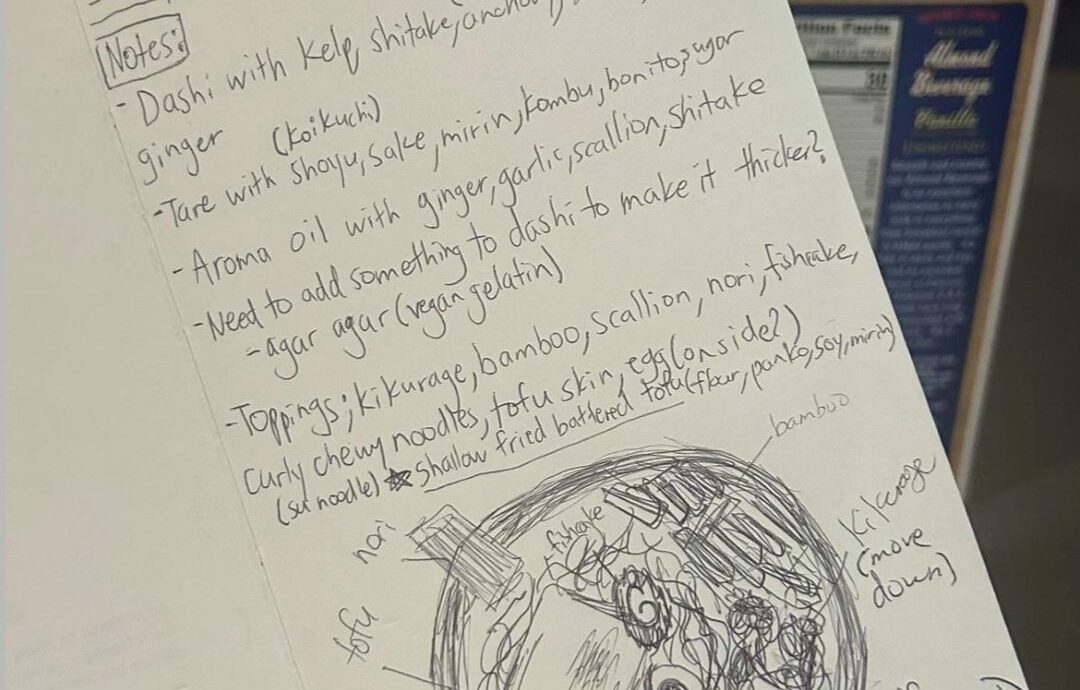 Notes:
- Dashi with kelp, shitake,
ginger
(Koikuchi)
- Tare with shoyu, sake, mirin, kombu, bonito, sugar
- Aroma oil with ginger, garlic, scallion, shitake
- Need to add something to dashi to make it thicker?
- agar agar (vegan gelatin)
- Toppings; kikurage, bamboo, scallion, nori, fishcake,
curly chewy noodles, tofu skin, egg (on side?)
(sun noodle) ★ Shallow fried battered tofu (flour, panko, soy, mirin)
bamboo
nori
fishcake
kikurage
(move
down)
tofu
Nutrition Facts
Almond
Beverage
Vanilla